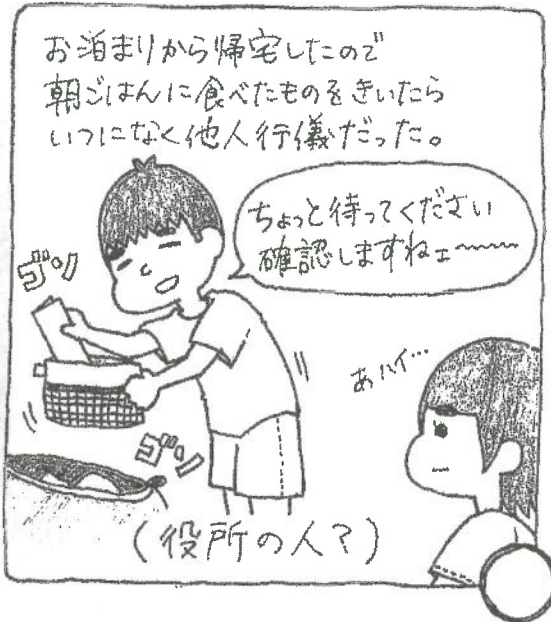 お泊まりから帰宅したので
朝ごはんに食べたものをきいたら
いつになく他人行儀だった。
ちょっと待ってください
確認しますねェ〜〜〜
ゴソ
あ ハイ…
ゴソ
(役所の人?)